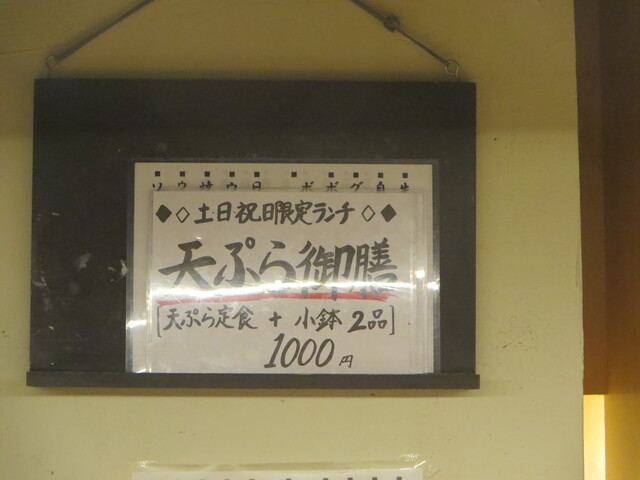 ◆◇土日祝日限定ランチ◇◆
天ぷら御膳
[天ぷら定食 + 小鉢 2品]
1000円